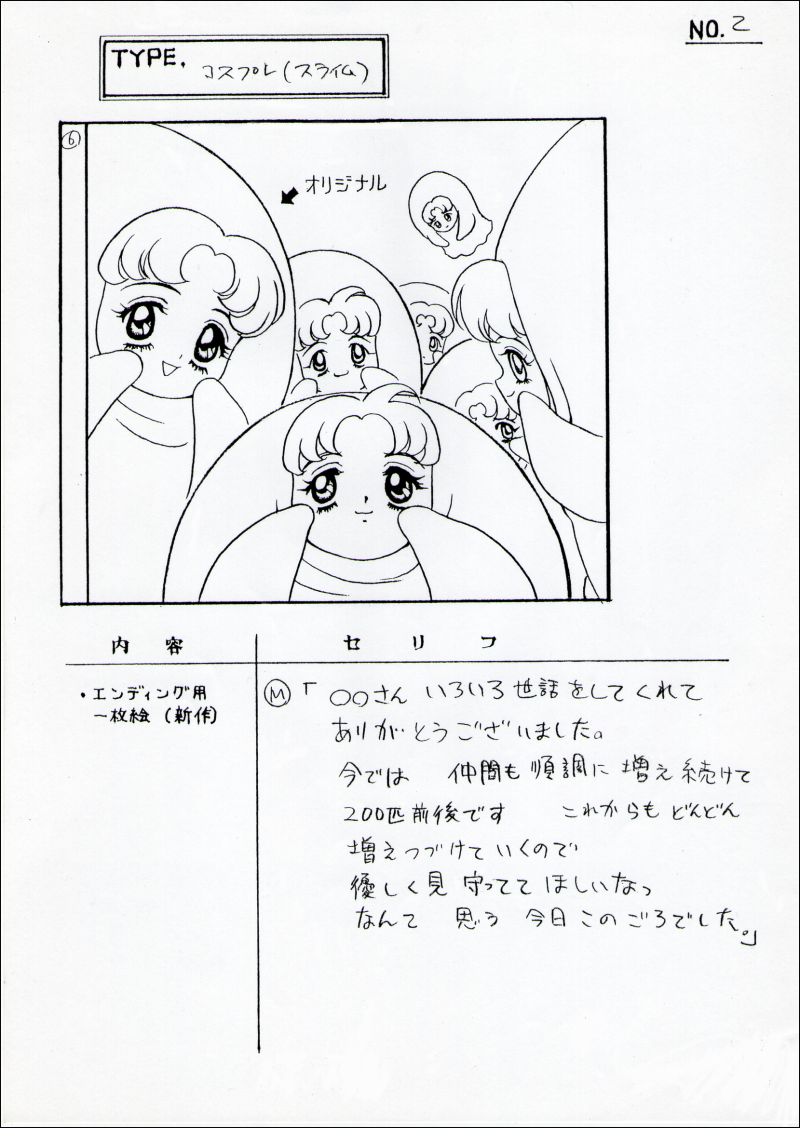 NO. 2
TYPE. コスプレ(スライム)
⑥
オリジナル
内容
セリフ
・エンディング用
一枚絵(新作)
Ⓜ「〇〇さん いろいろ世話をしてくれて
ありがとうございました。
今では 仲間も順調に増え続けて
200匹前後です これからもどんどん
増えつづけていくので
優しく見守っててほしいなっ
なんて 思う 今日このごろでした。」